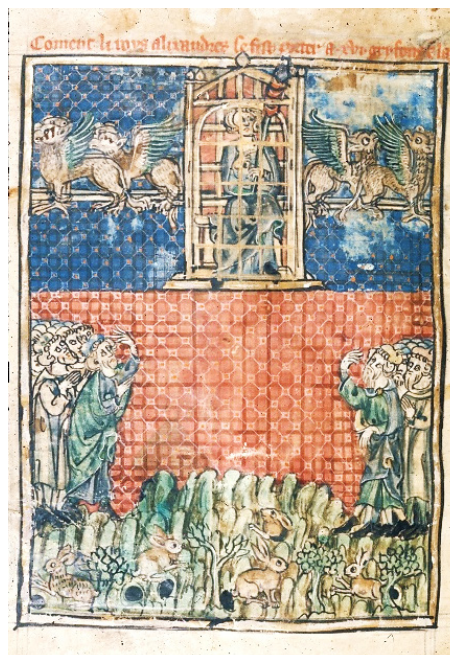 Coment li roys alixandres se fist porter a xvi griffons